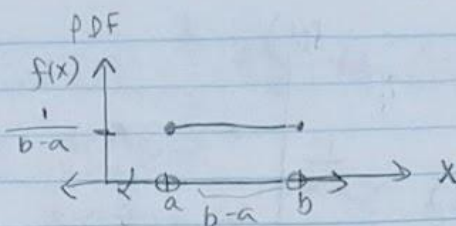 PDF
f(x)
1
b-a
a
b
x
b-a